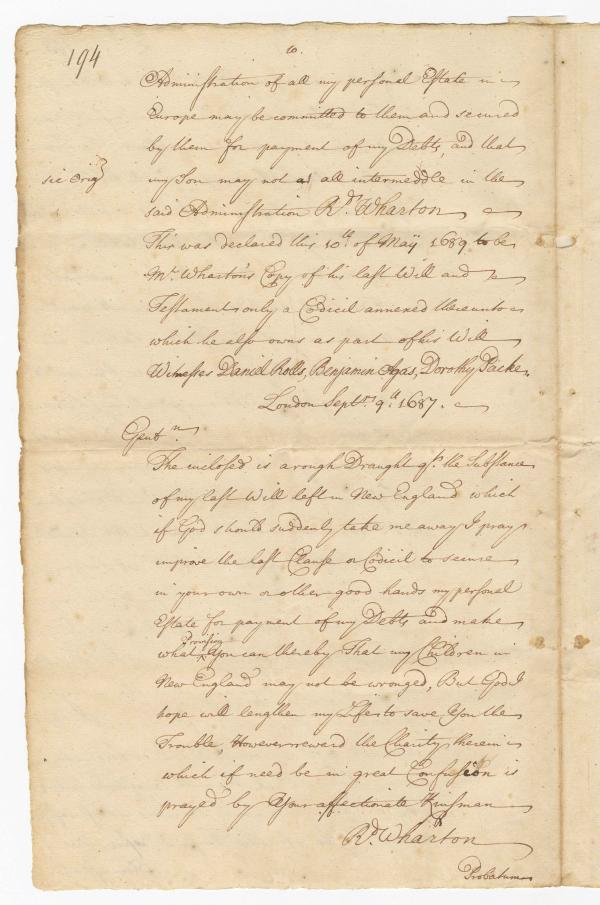 194
6.
Administration of all my personal Estate in
Europe may be committed to them and secured
by them for payment of my Debts, and that
sic Orig
my Son may not as all intermeddle in the
said Administration Rd. Wharton
This was declared this 10th. of May 1689 to be
Mr. Wharton's Copy of his last Will and
Testament only a Codicil annexed thereunto
which he also owns as part of his Will
Witnesses Daniel Rolls, Benjamin Agas, Dorothy Packe.
London Septr. 9th. 1687.
Gentn.
The inclosed is a rough Draught of the Substance
of my last Will left in New England which
if God should suddenly take me away I pray
improve the last Clause or Codicil to secure
in your own or other good hands my personal
Estate for payment of my Debts and make
what Provision you can thereby That my Children in
New England may not be wronged, But God I
hope will lengthen my Life to save You the
Trouble, However reward the Charity therein
which if need be in great Confusion is
prayed by Your affectionate Kinsman
Rd. Wharton
Probatum